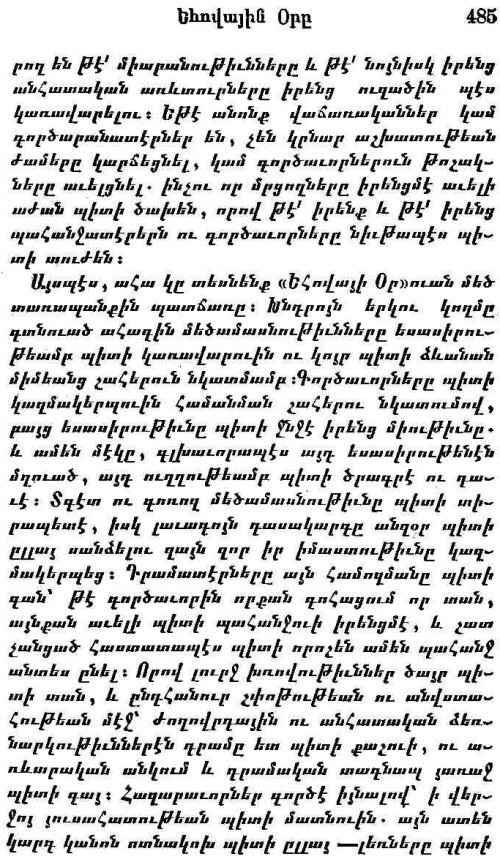 Եհովային Օրը 485
րող են թէ՛ միաբանութիւնները և թէ՛ նոյնիսկ իրենց
անհատական առևտուրները իրենց ուզածին պէս
կառավարելու։ Եթէ անոնք վաճառականներ կամ
գործարանատէրներ են, չեն կրնար աշխատութեան
ժամերը կարճեցնել, կամ գործաւորներուն թոշակ-
ները աւելցնել. ինչու որ մրցողները իրենցմէ աւելի
աժան պիտի ծախեն, որով թէ՛ իրենք և թէ՛ իրենց
պահանջատէրերն ու գործաւորները նիւթապէս պի-
տի տուժեն։
Այսպէս, ահա կը տեսնենք «Եհովայի Օր»ուան մեծ
տառապանքին պատճառը։ Խնդրոյն երկու կողմը
գտնուած ահագին մեծամասնութիւնները եսասիրու-
թեամբ պիտի կառավարուին ու կոյր պիտի ձևանան
միմեանց շահերուն նկատմամբ։ Գործաւորները պիտի
կազմակերպուին համանման շահերու նկատումով,
բայց եսասիրութիւնը պիտի ջնջէ իրենց միութիւնը.
և ամեն մէկը, գլխաւորապէս այդ եսասիրութենէն
մղուած, այդ ուղղութեամբ պիտի ծրագրէ ու դա-
ւէ։ Տգէտ ու գոռոզ մեծամասնութիւնը պիտի տի-
րապետէ, իսկ լաւագոյն դասակարգը անզօր պիտի
ըլլայ սանձելու զայն զոր իր իմաստութիւնը կազ-
մակերպեց։ Դրամատէրները այն համոզմանը պիտի
գան՝ թէ գործաւորին որքան գոհացում որ տան,
այնքան աւելի պիտի պահանջուի իրենցմէ, և շատ
չանցած հաստատապէս պիտի որոշեն ամեն պահանջ
անտես ընել։ Որով լուրջ խռովութիւններ ծայր պի-
տի տան, և ընդհանուր շփոթութեան ու անվստա-
հութեան մէջ՝ ժողովրդային ու անհատական ձեռ-
նարկութիւններէն դրամը ետ պիտի քաշուի, ու ա-
ռևտրական անկում և դրամական տագնապ յառաջ
պիտի գայ։ Հազարաւորներ գործէ իյնալով՝ ի վեր-
ջոյ յուսահատութեան պիտի մատնուին. այն ատեն
կարգ կանոն ոտնակոխ պիտի ըլլայ —լեռները պիտի